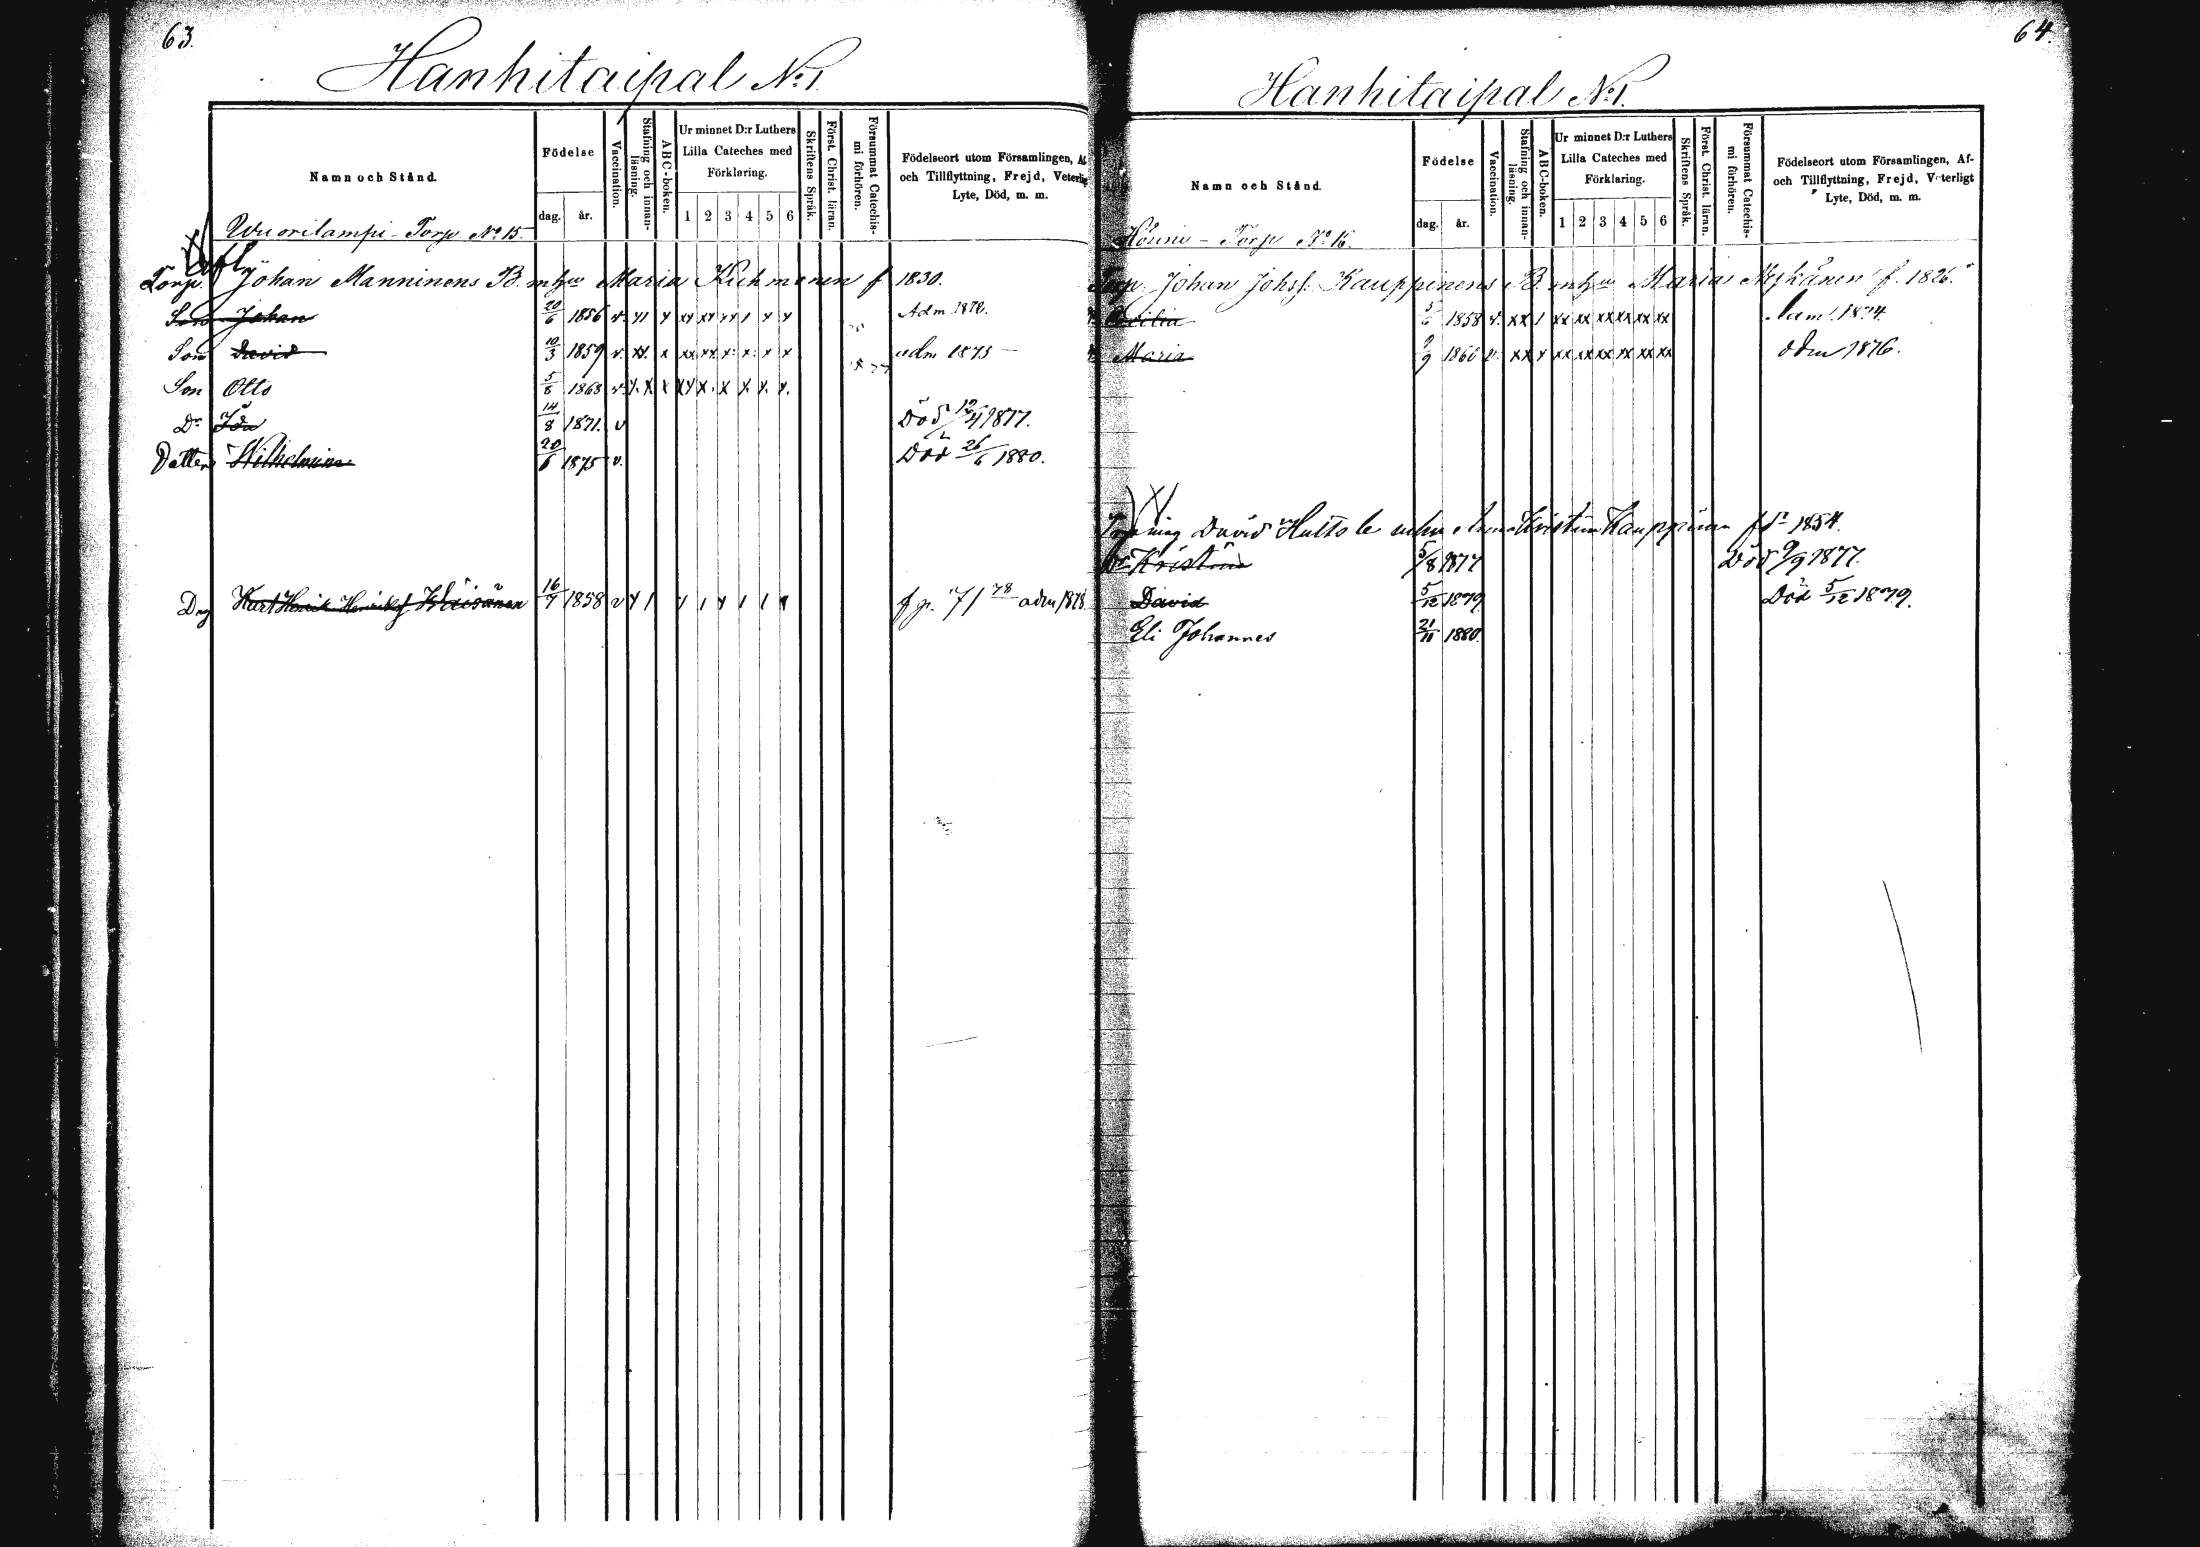 63.
Hanhitaipal No 1.
Namn och Stånd.
Födelse
dag. år.
Vaccination.
Stafning och innan-läsning.
ABC-boken.
Ur minnet D:r Luthers
Lilla Cateches med
Förklaring.
1 2 3 4 5 6
Skriftens Språk.
Först. Christ. läran.
Försummat Catechis-
mi förhören.
Födelseort utom Församlingen, Af-
och Tillflyttning, Frejd, Veterlig
Lyte, Död, m. m.
Wuorilampi - Torp No 15.
Torp. Johan Manninens B. Maria f 1830.
Son Johan 20/6 1856 v. Adm. 1872.
Son David 10/3 1859 v. xx x xx xx x x x x adm 1875
Son Otto 5/8 1868 v.
Dr Ida 14/8 1871. v Död 1877.
Datter Wilhelmina 20/6 1875 v. Död 26/6 1880.
Dng Henrik Henriksf Wäisänen 16/7 1858 v f p. 71 78 adm 1878
64.
Hanhitaipal No 1.
Namn och Stånd.
Födelse
dag. år.
Vaccination.
Stafning och innan-läsning.
ABC-boken.
Ur minnet D:r Luthers
Lilla Cateches med
Förklaring.
1 2 3 4 5 6
Skriftens Språk.
Först. Christ. läran.
Försummat Catechis-
mi förhören.
Födelseort utom Församlingen, Af-
och Tillflyttning, Frejd, Veterligt
Lyte, Död, m. m.
Torp No 16.
Torp. Johan Johsf. Kauppinens B. Maria Nykänen f. 1826.
Cecilia 1858 v. xx 1 xx xx xx xx xx xx 1874.
Maria 9/9 1860 v. xx x xx xx xx xx xx xx 1876.
David Anna Kristina Kauppinen f 1854.
Dr Kristina 5/8 1877 Död 9/9 1877.
David 5/12 1879 Död 5/12 1879.
Eli Johannes 21/11 1880.